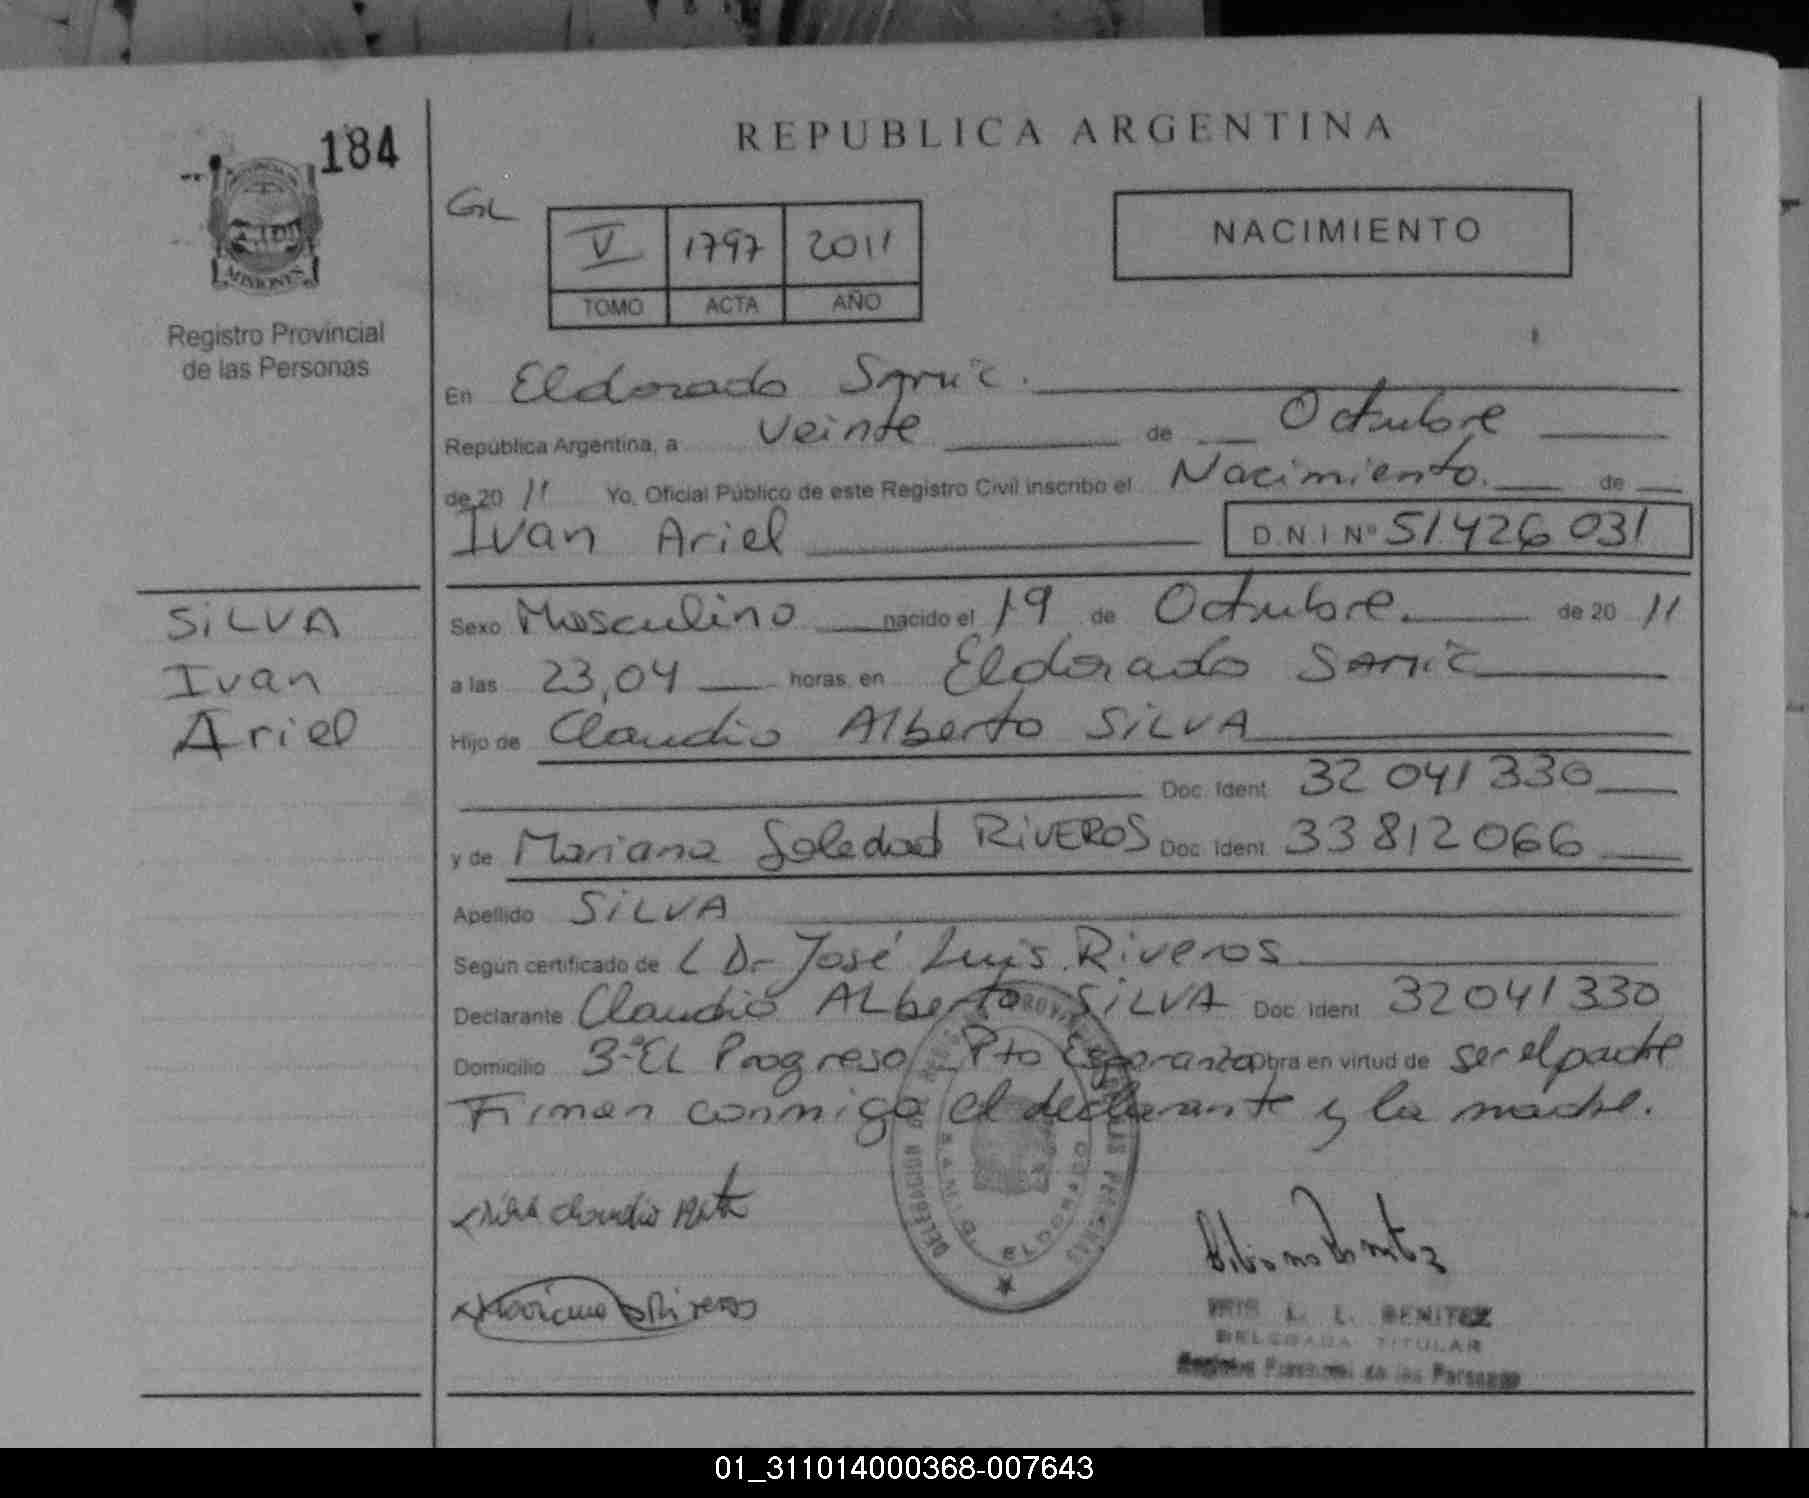 184
MISIONES
Registro Provincial
de las Personas
REPUBLICA ARGENTINA
V 1797 2011
TOMO ACTA AÑO
NACIMIENTO
En Eldorado Samic.
República Argentina, a veinte de Octubre
de 20 11 Yo, Oficial Público de este Registro Civil inscribo el Nacimiento. de
Ivan Ariel D.N.I Nº 51426 031
SiLVA
Ivan
Ariel
Sexo Masculino nacido el 19 de Octubre. de 20 11
a las 23,04 horas, en Eldorado Samic
Hijo de Claudio Alberto SiLVA
Doc. Ident. 32 041 330
y de Mariana Soledad RiVEROS Doc. Ident. 33 812 066
Apellido SiLVA
Según certificado de Dr José Luis Riveros
Declarante Claudio ALberto SiLVA Doc. Ident. 32 041 330
Domicilio EL Progreso Pto Esperanza Obra en virtud de ser el padre
Firman conmigo el declarante y la madre.
Silva Claudio
Mariana Riveros
ELDORADO
L. L. BENITEZ
DELEGADA TITULAR
Registro Provincial de las Personas
01_311014000368-007643